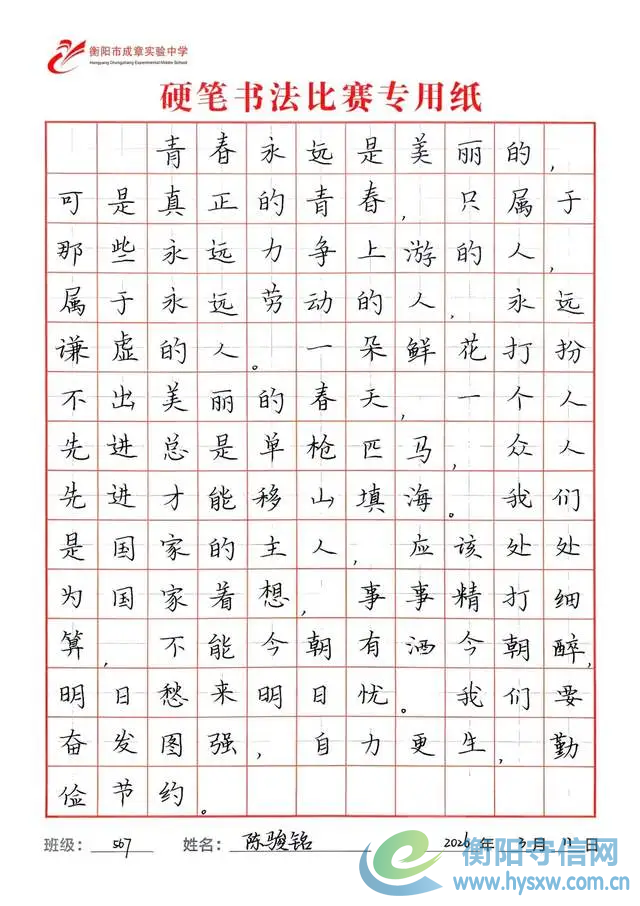 衡阳市成章实验中学
Hengyang Chengzhang Experimental Middle School
硬笔书法比赛专用纸
青春永远是美丽的,
可是真正的青春,只属于
那些永远力争上游的人,
属于永远劳动的人,永远
谦虚的人。一朵鲜花打扮
不出美丽的春天,一个人
先进总是单枪匹马,众人
先进才能移山填海。我们
是国家的主人,应该处处
为国家着想,事事精打细
算,不能今朝有酒今朝醉,
明日愁来明日忧。我们要
奋发图强,自力更生,勤
俭节约。
班级: 567 姓名: 陈骏铭 2026年3月11日
衡阳守信网
www.hysxw.com.cn